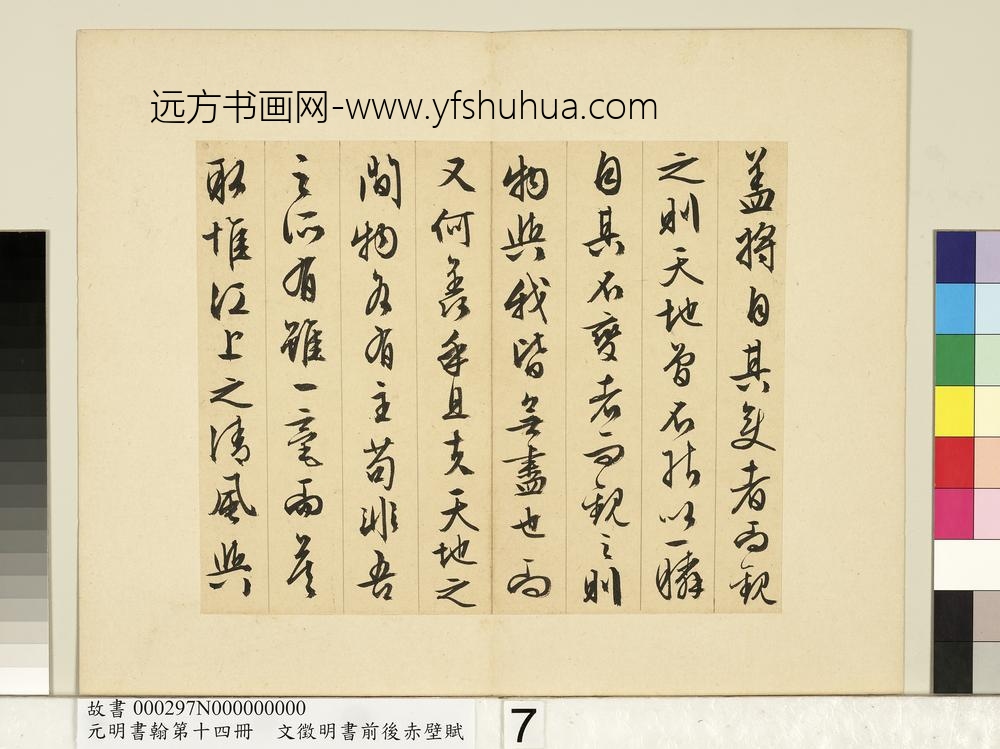 远方书画网-www.yfshuhua.com
盖將自其變者而觀
之則天地曾不能以一瞬
自其不變者而觀之則
物與我皆無盡也而
又何羨乎且夫天地之
間物各有主苟非吾
之所有雖一毫而莫
取惟江上之清風與
故書 000297N000000000
元明書翰第十四冊 文徵明書前後赤壁賦
7